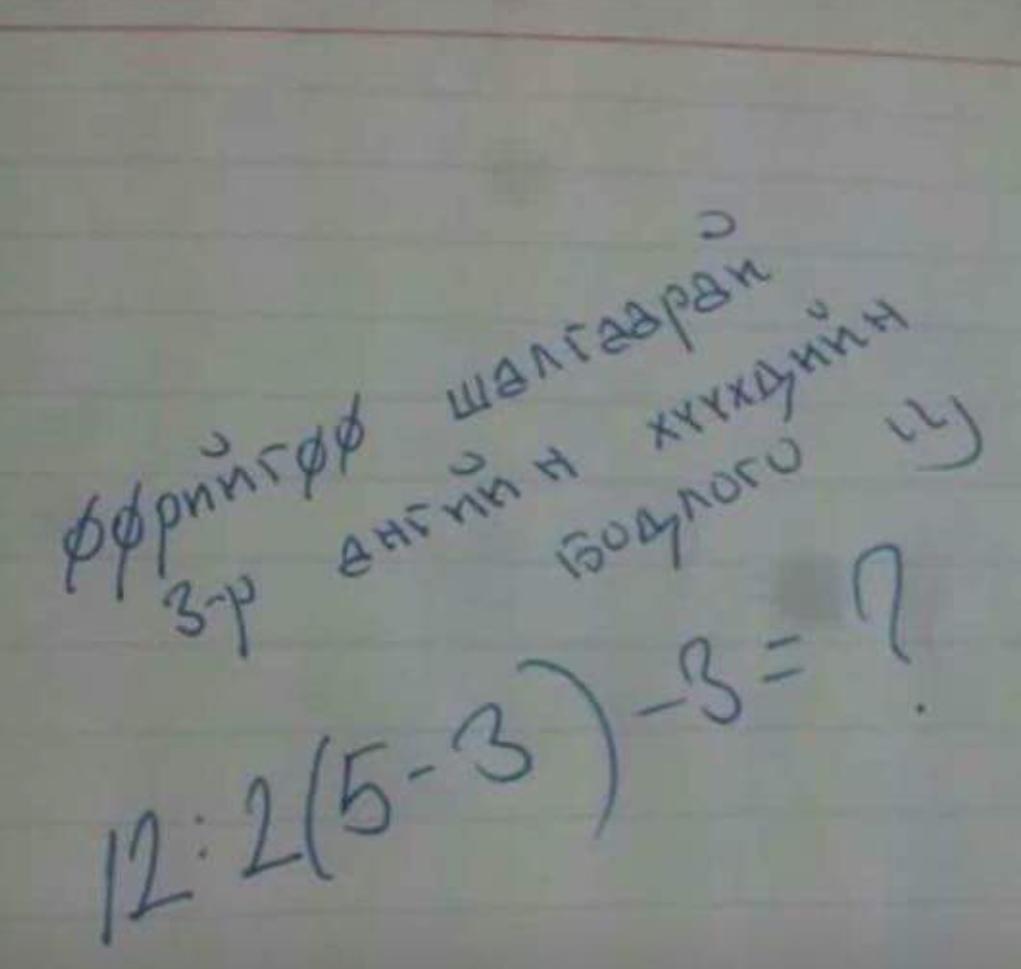 Өөрийгөө шалгаарай
3-р ангийн хүүхдийн
бодлого :)
12:2(5-3)-3=?